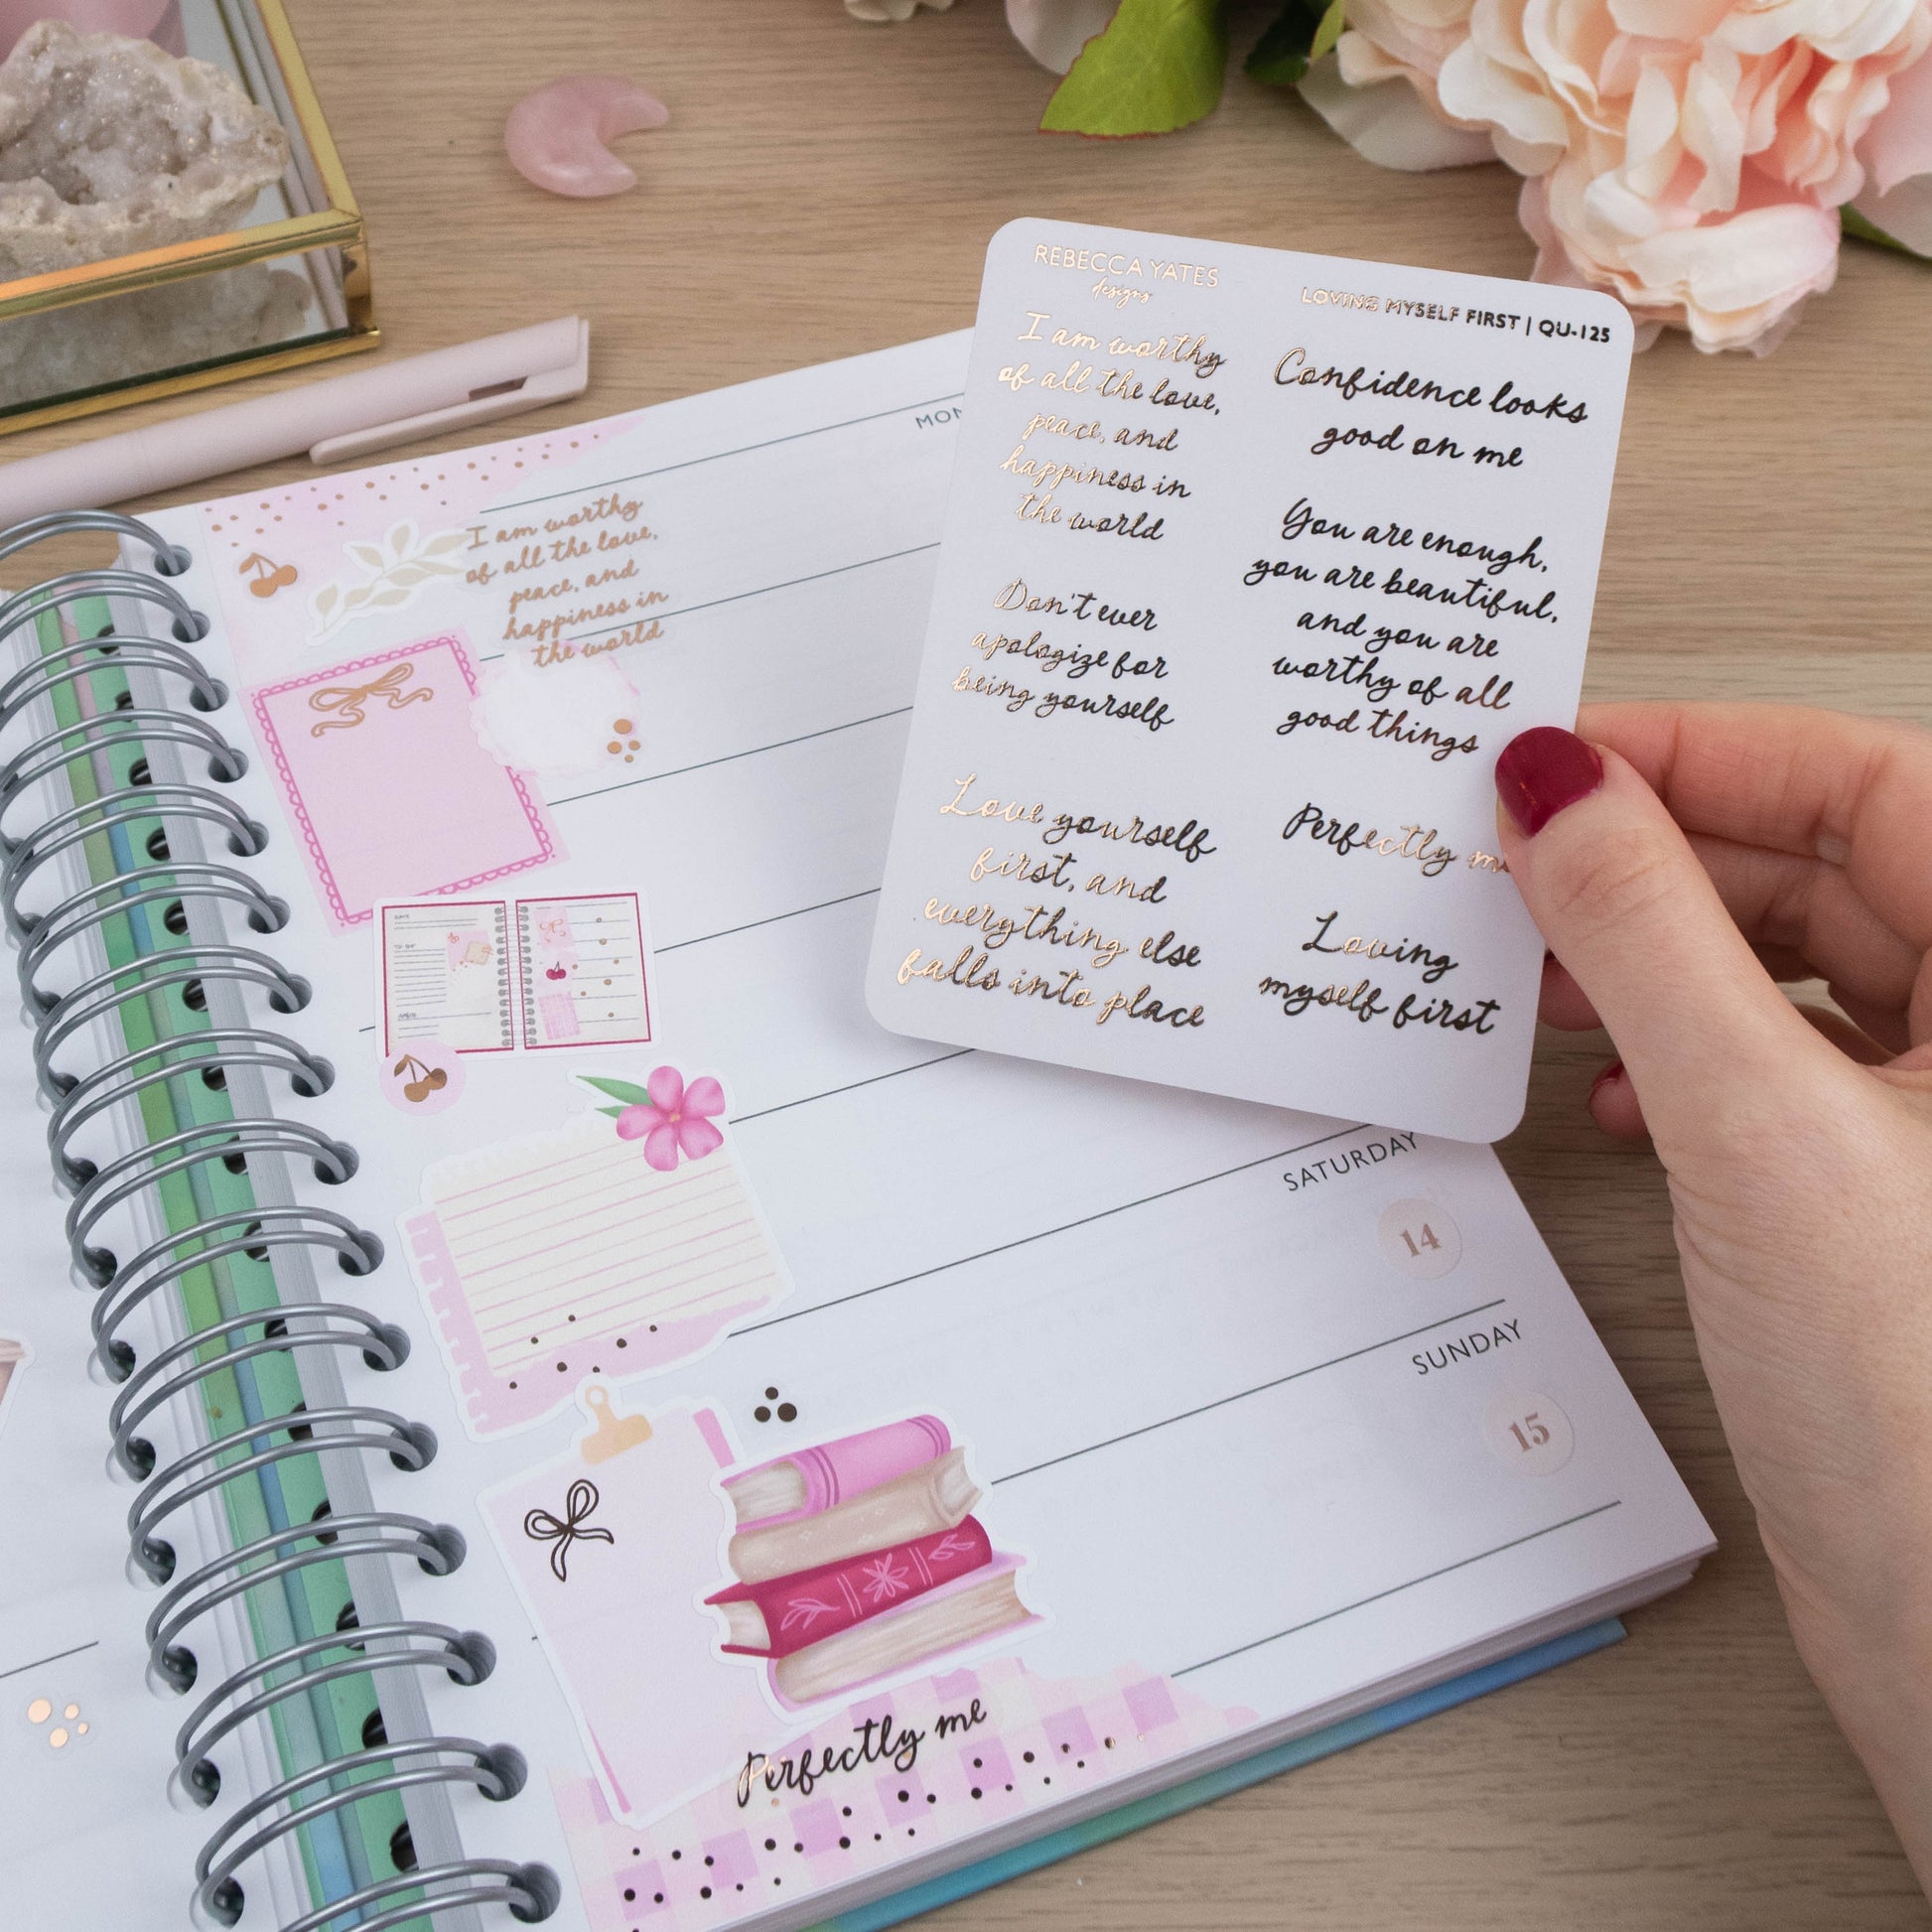 REBECCA YATES
designs
LOVING MYSELF FIRST | QU-125
I am worthy
of all the love,
peace, and
happiness in
the world
Don't ever
apologize for
being yourself
Love yourself
first, and
everything else
falls into place
Confidence looks
good on me
You are enough,
you are beautiful,
and you are
worthy of all
good things
Perfectly me
Loving
myself first
MON
I am worthy
of all the love,
peace, and
happiness in
the world
SATURDAY
14
SUNDAY
15
Perfectly me